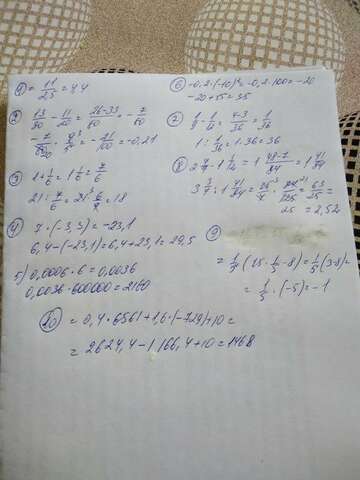 1) = 11/25 = 44
2) 13/30 - 11/20 = 26-33/60 = -7/60
-7/60 · 9/5 = -21/100 = -0,21
3) 1+1/6 = 1 1/6 = 7/6
21 : 7/6 = 21 · 6/7 = 18
4) 7 · (-3,3) = -23,1
6,4-(-23,1) = 6,4+23,1 = 29,5
5) 0,0006 · 6 = 0,0036
0,0036 · 600000 = 2160
6) -0,2 · (-10)² = -0,2 · 100 = -20
-20+55 = 35
7 1/9 - 1/12 = 4-3/36 = 1/36
1 : 1/36 = 1 · 36 = 36
8 2 4/7 - 1 1/12 = 1 48-7/84 = 1 41/84
3 3/4 : 1 41/84
= 63/25 =
25 = 2,52
9
= 1/5 (15 · 1/5 - 8) = 1/5 (3-8) =
= 1/5 · (-5) = -1
10 = 0,4 · 6561 + 1,6 · (-729) + 10 =
= 2624,4 - 1166,4 + 10 = 1468